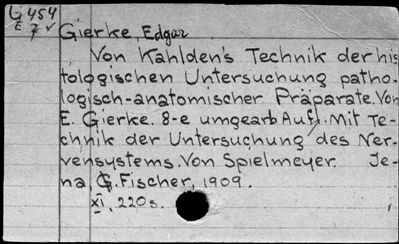 G454
E 7 v
Gierke, Edgar
Von Kahlden's Technik der his
tologischen Untersuchung patho-
logisch-anatomischer Präparate. Von
E. Gierke. 8-e umgearb Aufl. Mit Te-
chnik der Untersuchung des Ner-
vensystems. Von Spielmeyer. Je-
na, G. Fischer, 1909.
XI, 220 s.